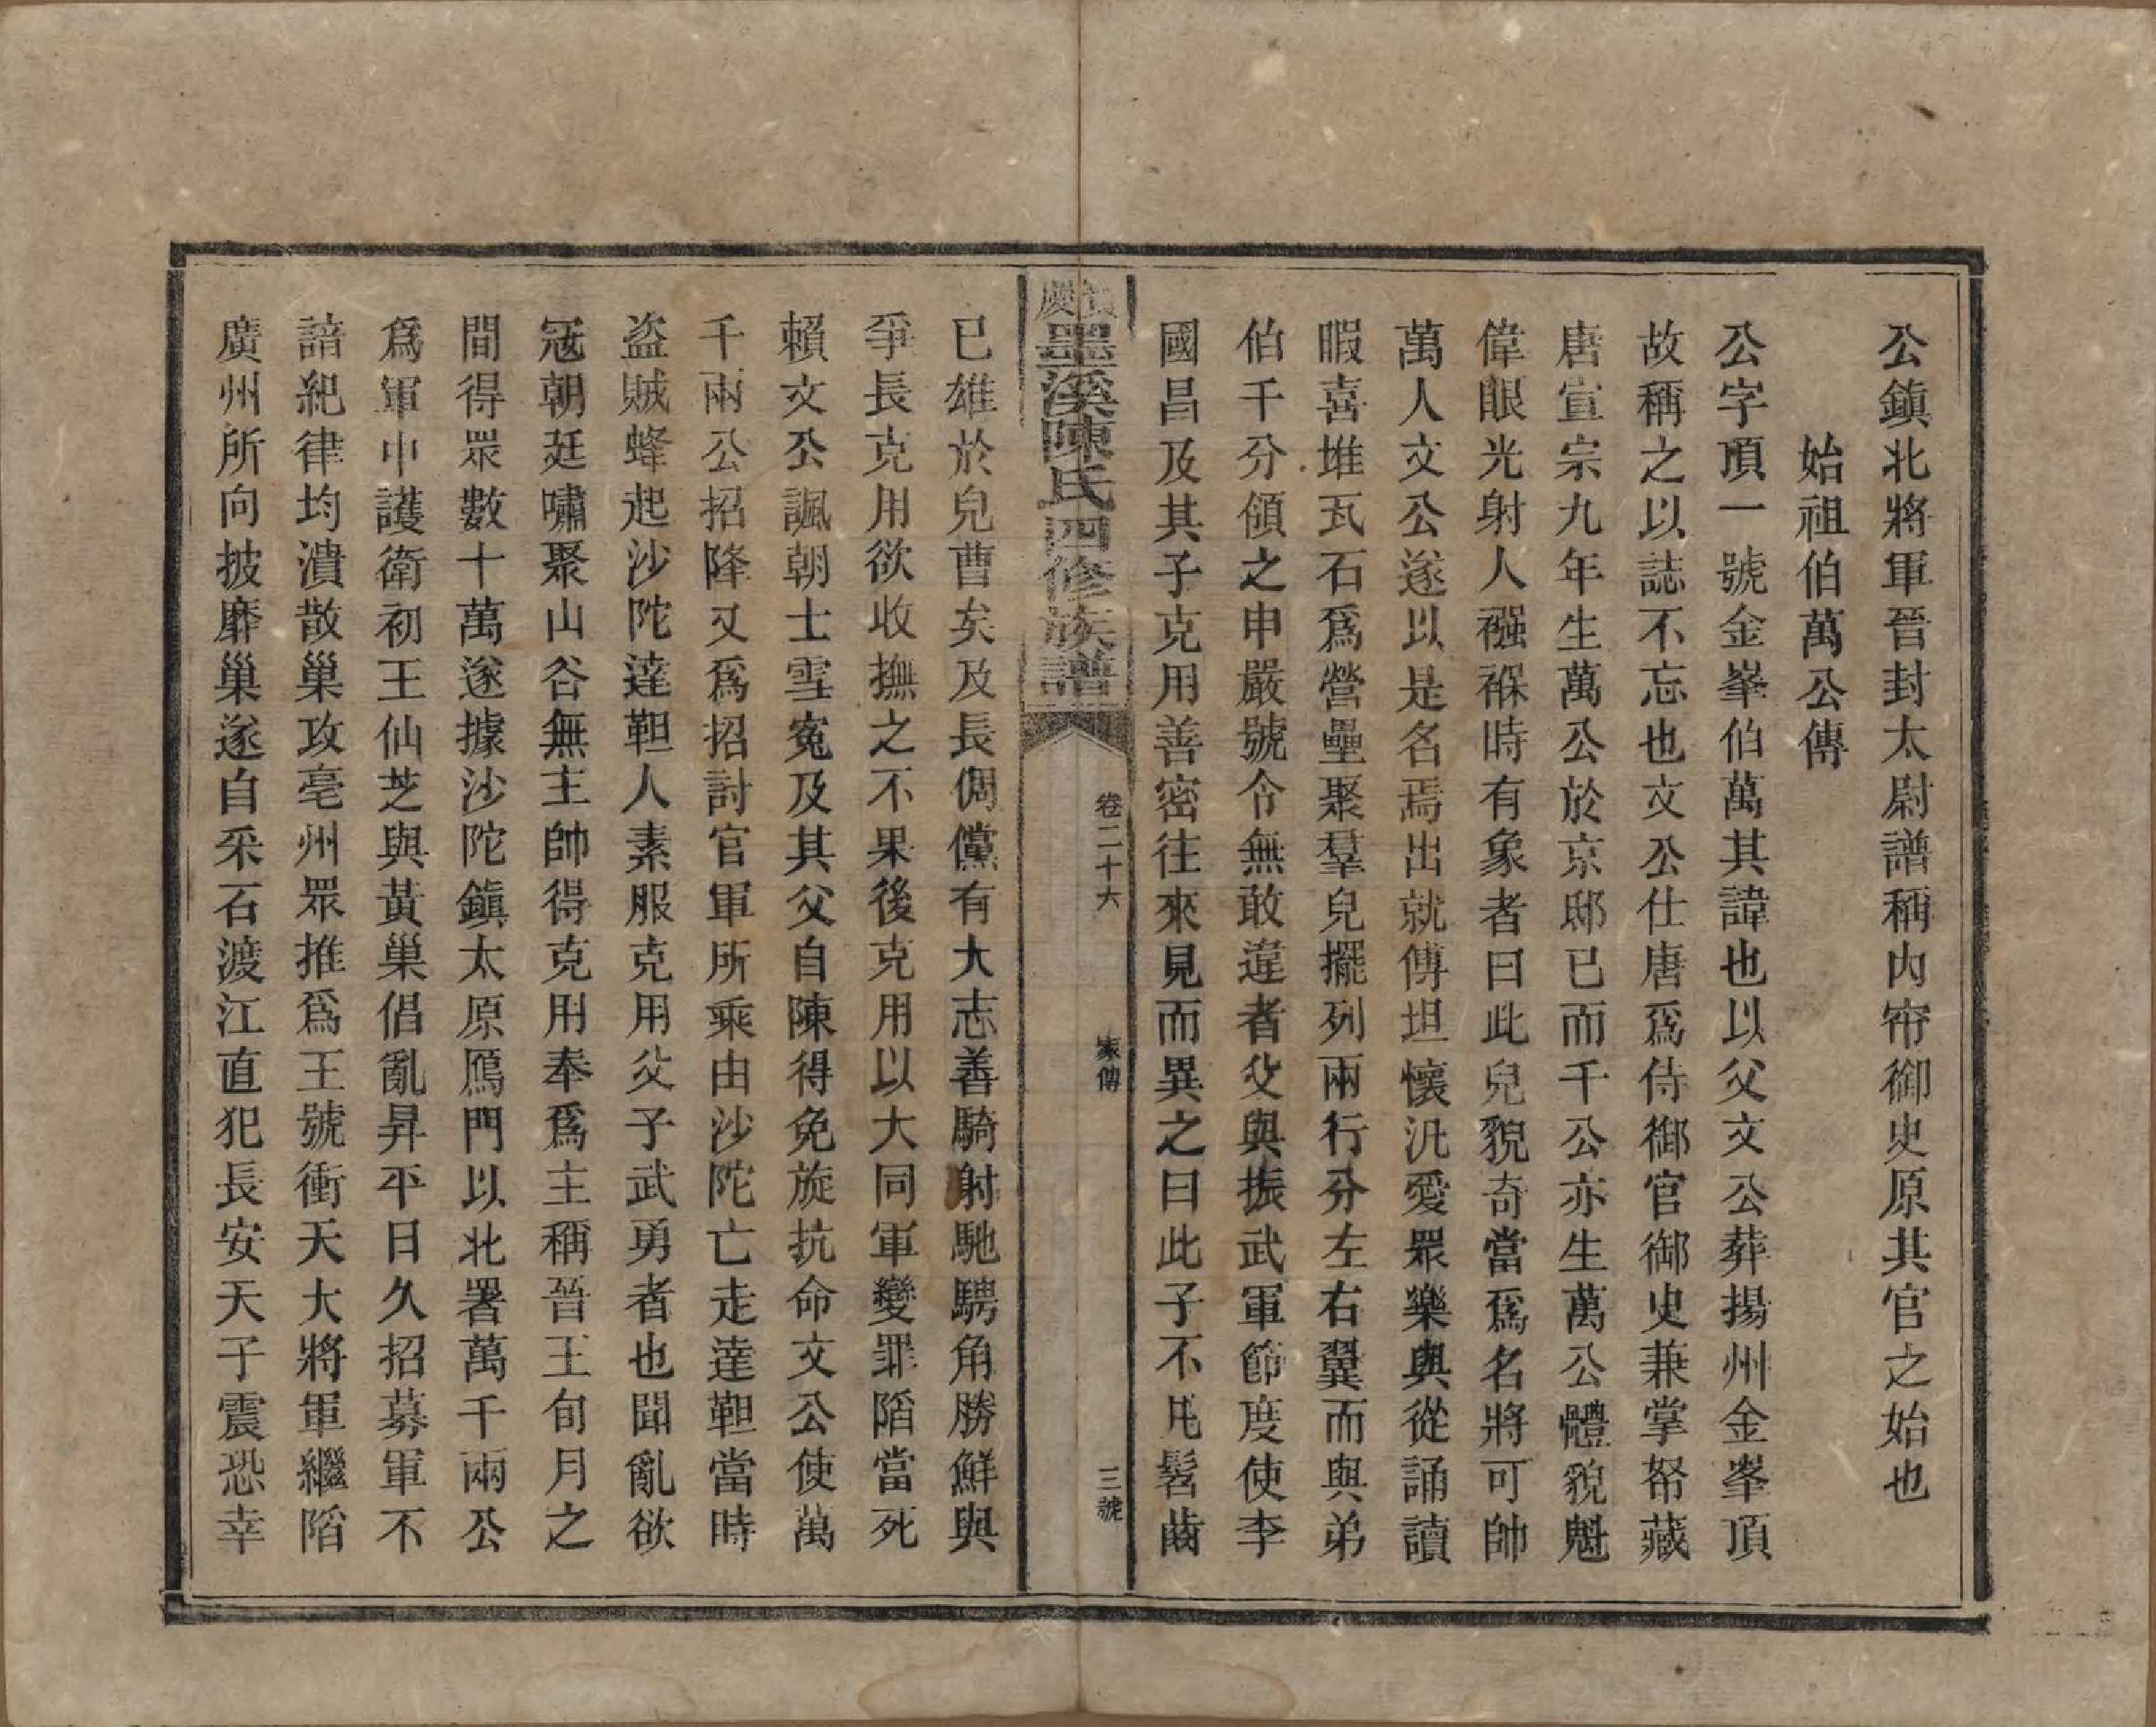 公鎮北將軍晉封太尉譜稱內帘御史原其官之始也
始祖伯萬公傳
公字頂一號金峯伯萬其諱也以父文公葬揚州金峯頂
故稱之以誌不忘也文公仕唐爲侍御官御史兼掌帑藏
唐宣宗九年生萬公於京邸已而千公亦生萬公體貌魁
偉眼光射人襁褓時有象者曰此兒貌奇當爲名將可帥
萬人文公遂以是名焉出就傅坦懷汎愛眾樂與從誦讀
暇喜堆瓦石爲營壘聚羣兒擺列兩行分左右翼而與弟
伯千分領之申嚴號令無敢違者父與振武軍節度使李
國昌及其子克用善密往來見而異之曰此子不凡髫齒
慶墨溪陳氏四修族譜
卷二十六
家傳
三號
已雄於兒曹矣及長倜儻有大志善騎射馳騁角勝鮮與
爭長克用欲收撫之不果後克用以大同軍變罪陷當死
賴文公諷朝士雪寃及其父自陳得免旋抗命文公使萬
千兩公招降又爲招討官軍所乘由沙陀亡走達靼當時
盗賊蜂起沙陀達靼人素服克用父子武勇者也聞亂欲
冦朝廷嘯聚山谷無主帥得克用奉爲主稱晉王旬月之
間得眾數十萬遂據沙陀鎮太原鴈門以北署萬千兩公
爲軍中護衛初王仙芝與黃巢倡亂昇平日久招募軍不
諳紀律均潰散巢攻亳州眾推爲王號衝天大將軍繼陷
廣州所向披靡巢遂自采石渡江直犯長安天子震恐幸